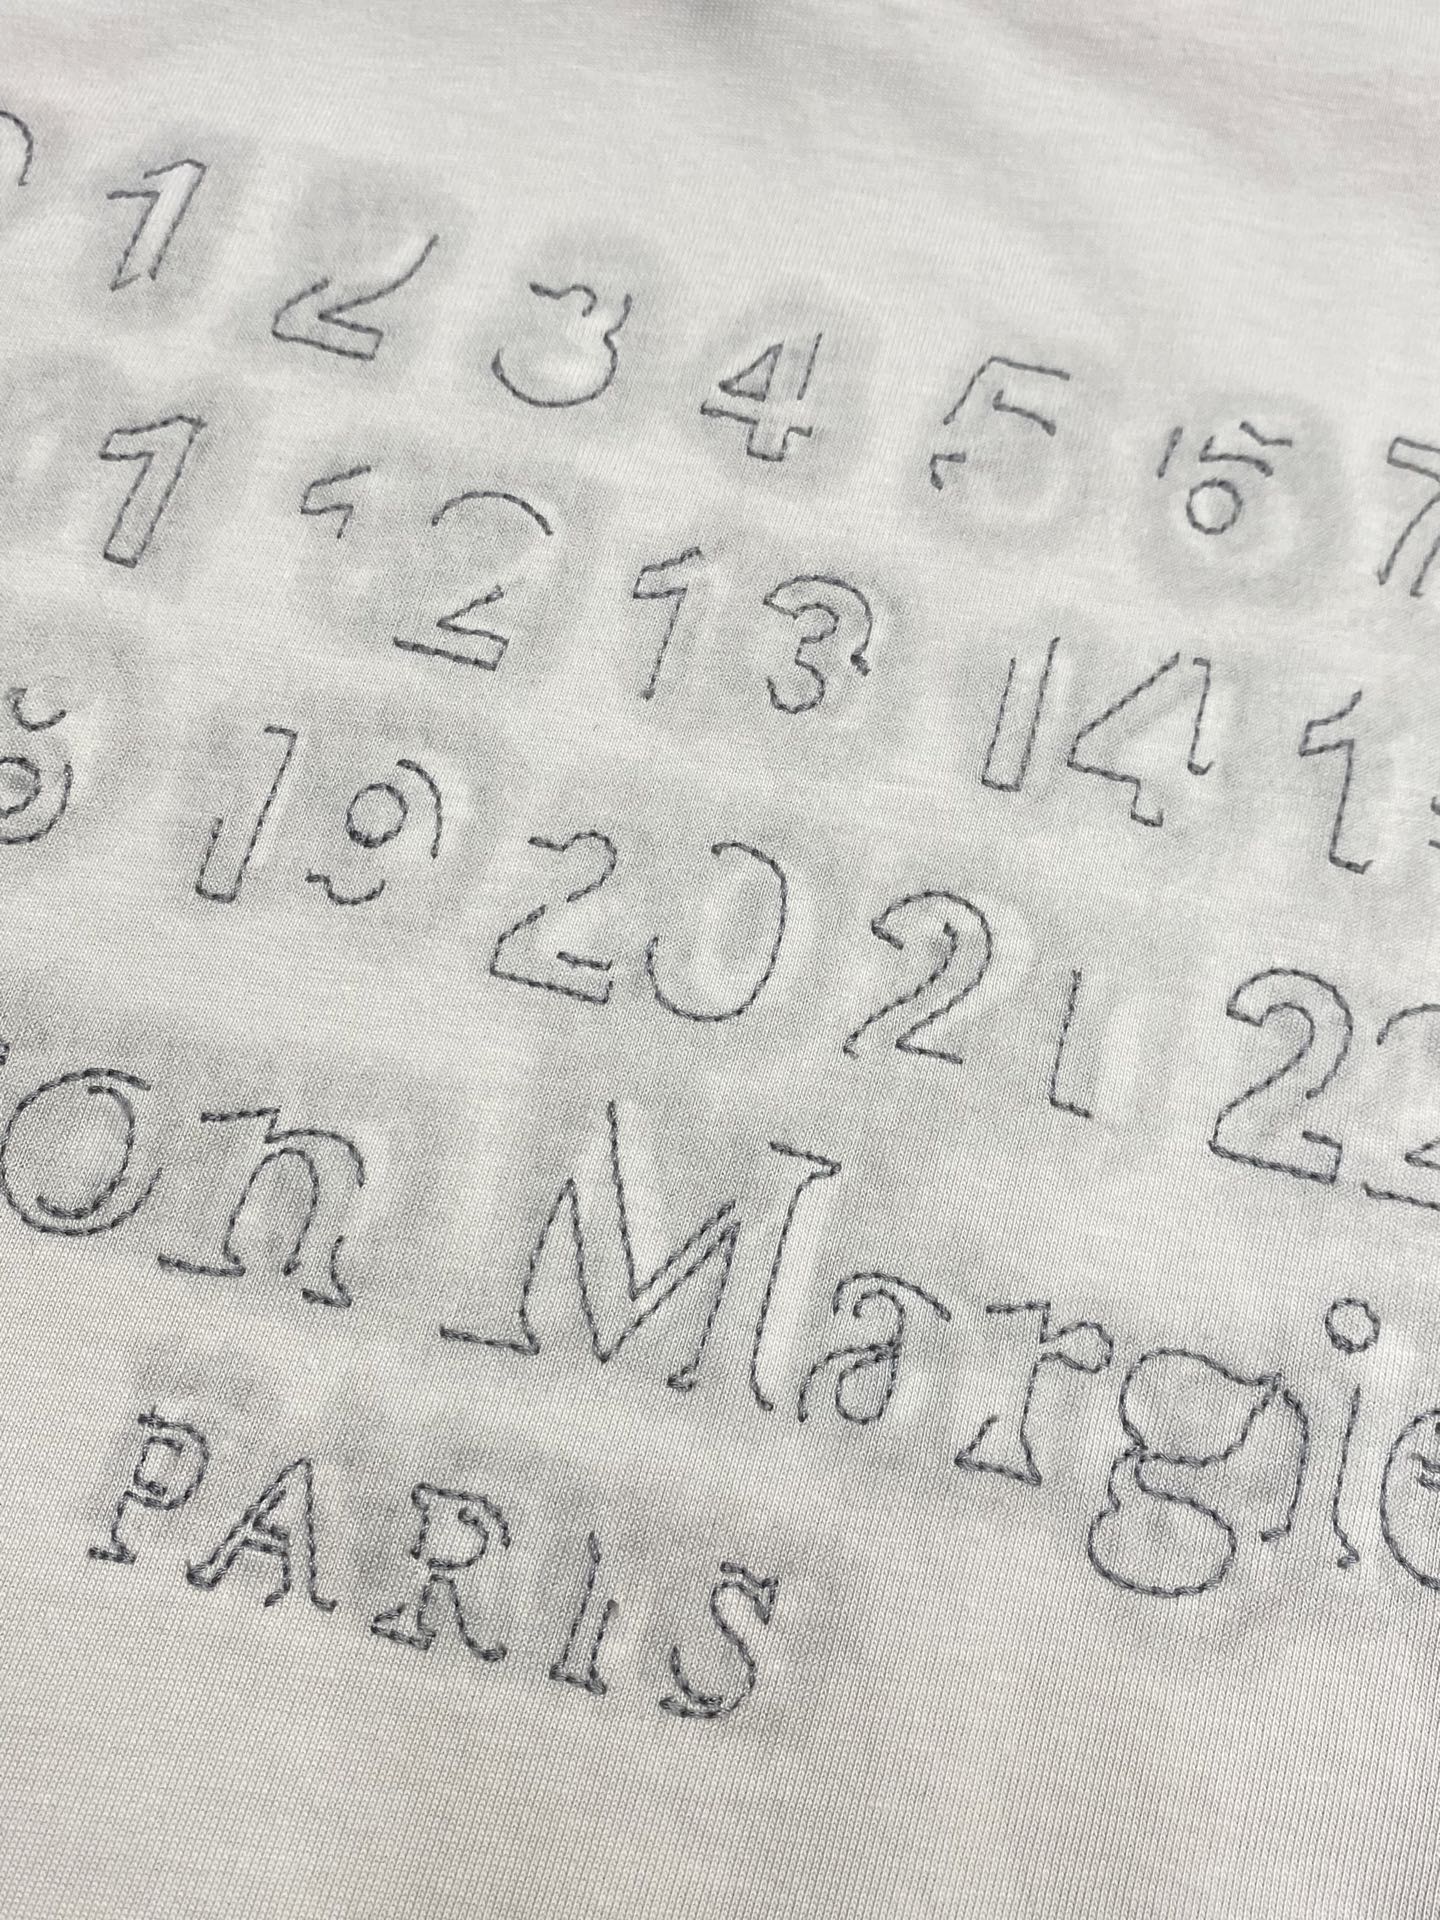 0 1 2 3 4 5 6 7
1 12 13 14 1
8 19 20 21 22
on Margie
PARIS